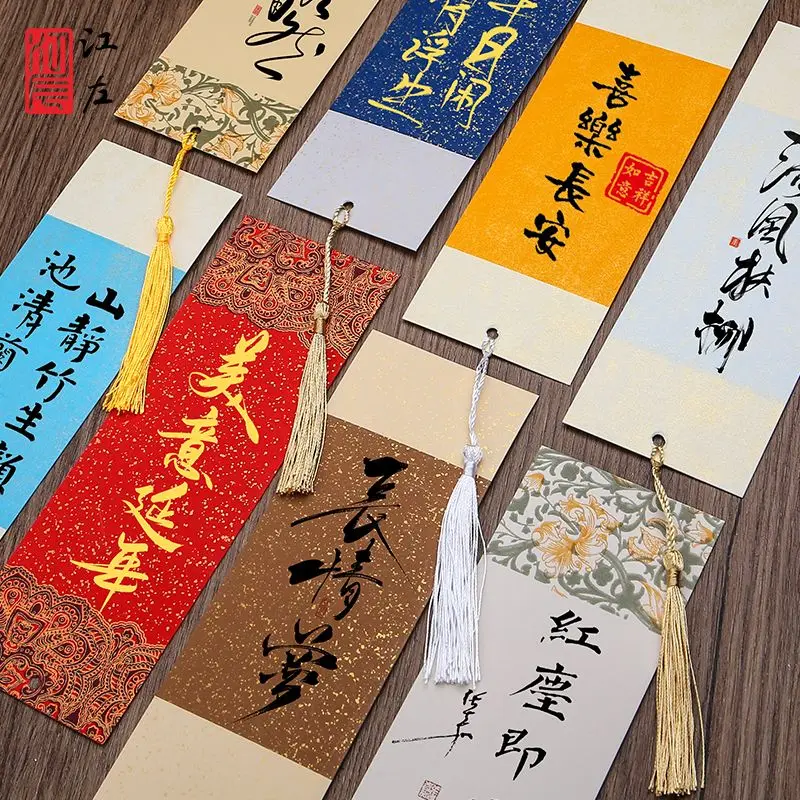 江左
半日闲
浮生
喜樂長安
吉祥
如意
清風扶柳
山靜竹生韻
池清蘭
美意延年
長情夢
紅塵即